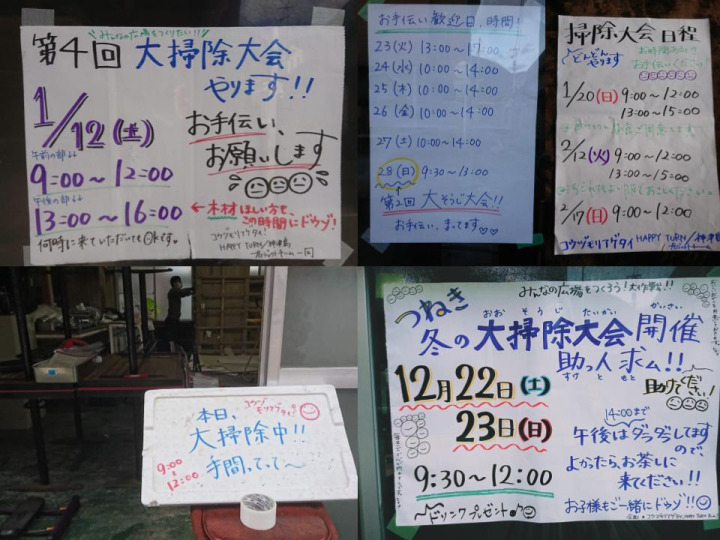 みんなの広場をつくりたい!!
第4回 大掃除大会
やります!!
1/12(土)
お手伝い、
お願いします
午前の部↓↓
9:00~12:00
午後の部↓↓
13:00~16:00
←木材ほしい方も、
この時間にドウゾ!
何時に来ていただいてもOKです♡
コウヅモリアゲタイ!
HAPPY TURN/神津島
お手伝い歓迎日、時間!
23(火) 13:00~17:00
24(水) 10:00~14:00
25(木) 10:00~14:00
26(金) 10:00~14:00
27(土) 10:00~14:00
28(日) 9:30~13:00
第2回 大そうじ大会!!
お手伝い、まってます♡♡
掃除大会日程
どんどん
やります
お時間あれば
お手伝いください
1/20(日) 9:00~12:00
13:00~15:00
2/12(火) 9:00~12:00
13:00~15:00
2/17(日) 9:00~12:00
コウヅモリアゲタイ HAPPY TURN/神津島
本日、
コウヅモリアゲタイ
大掃除中!!
9:00~12:00
手間って~
みんなの広場をつくろう!大作戦!!
つねき
おおそうじたいかいかいさい
冬の大掃除大会開催
助っ人求ム!!
すけともと
12月22日(土)
23日(日)
9:30~12:00
ドリンクプレゼント♪
助けてください!
14:00まで
午後はダラダラしてます
ので
よかったら、お茶しに
来てください!!
お子様もご一緒にドウゾ!!